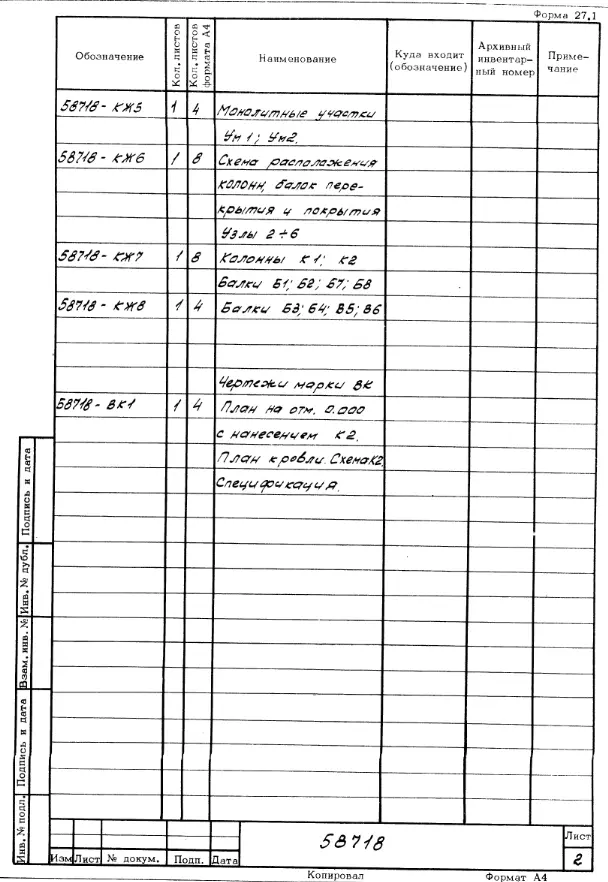 Форма 27.1
Обозначение Кол. листов Кол. листов формата А4 Наименование Куда входит (обозначение) Архивный инвентарный номер Примечание
58718 - КЖ5 1 4 Монолитные участки
Ум 1; Ум2.
58718 - КЖ6 1 8 Схема расположения
колонн, балок пере-
крытия и покрытия
Узлы 2÷6
58718 - КЖ7 1 8 Колонны К1; К2
Балки Б1; Б2; Б7; Б8
58718 - КЖ8 1 4 Балки Б3; Б4; Б5; Б6
Чертежи марки ВК
58718 - ВК1 1 4 План на отм. 0.000
с нанесением К2.
План кровли. Схема К2.
Спецификация.
Подпись и дата
Инв. № дубл.
Взам. инв. №
Подпись и дата
Инв. № подл.
58718
Лист
2
Изм Лист № докум. Подп. Дата
Копировал Формат А4